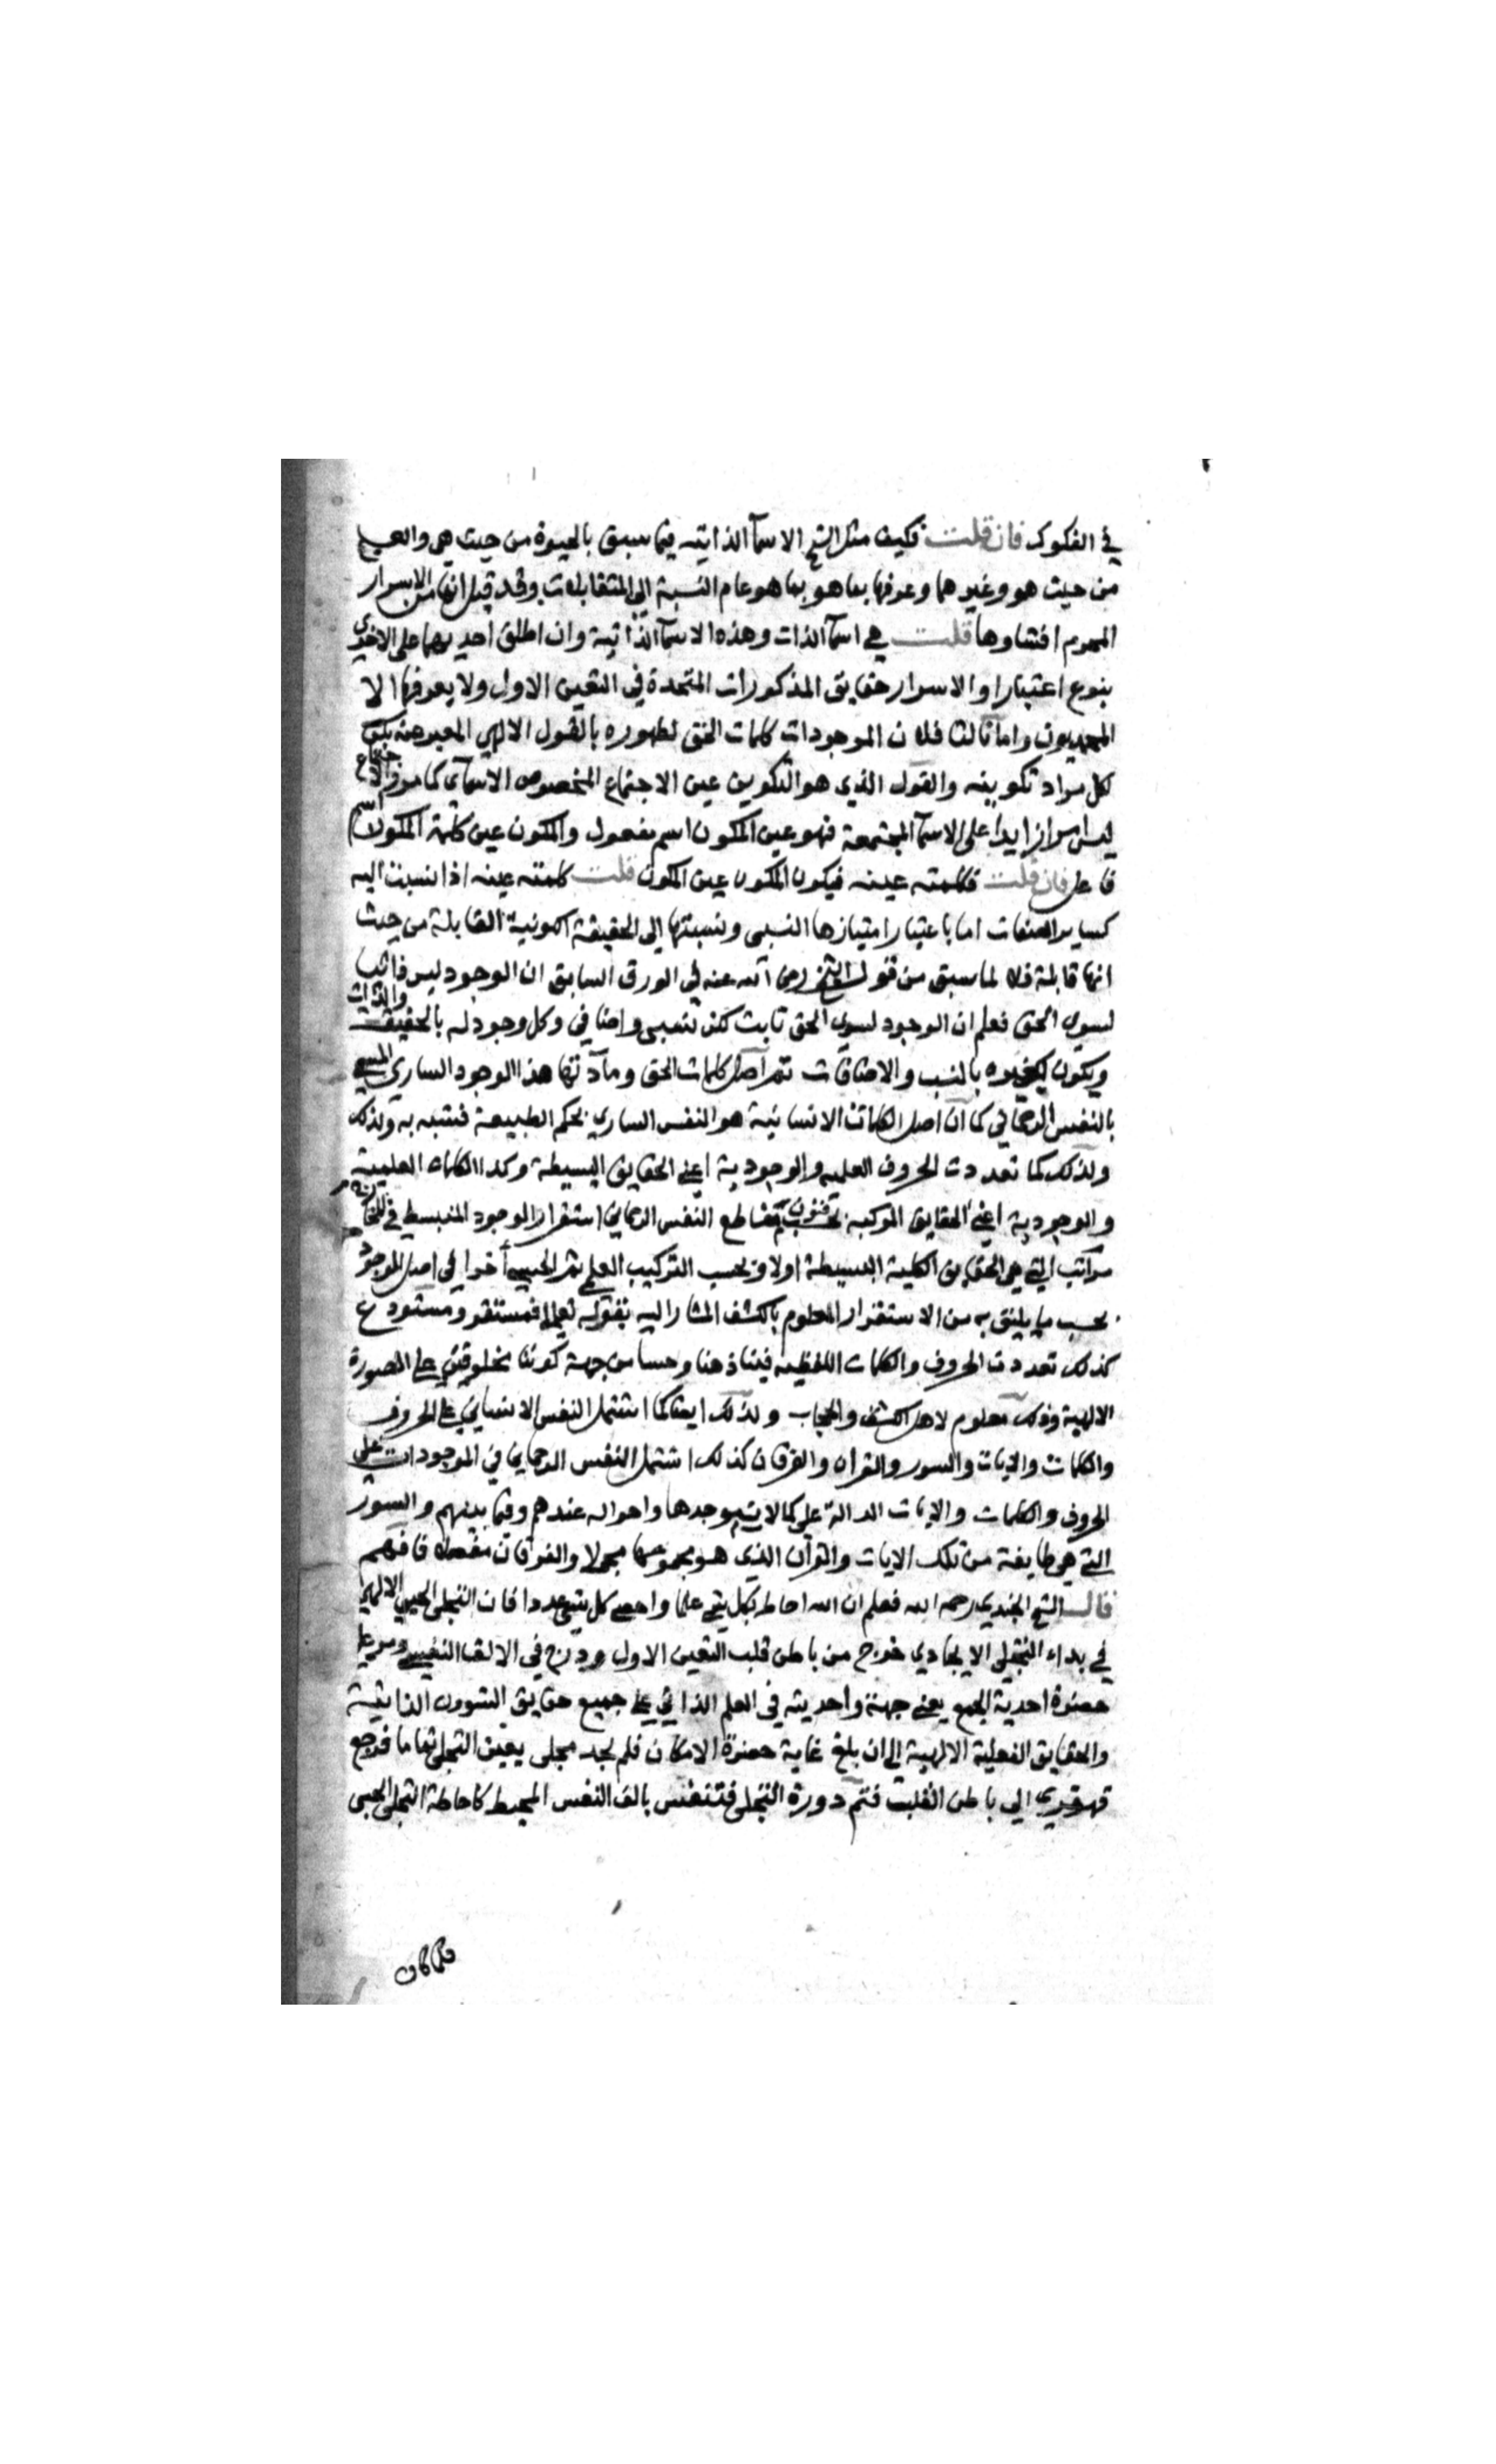 في الفكوك فان قلت فكيف مثل الشيخ الاسمآ الذاتية فيما سبق بالحيوة من حيث هي والعلم
من حيث هو وغيرهما وعرفها بما هو بما هو عام النسبة الى المتقابلات وقد قيل انها من الاسرار
المحرم افشاوها قلت هي اسمآ الذات وهذه الاسمآ الذاتية وان اطلق احديهما على الاخرى
بنوع اعتبار او الاسرار حقايق المذكورات المتحدة في التعين الاول ولا يعرفها الا
المحمديون واما ثالثا فلان الموجودات كلمات الحق لظهوره بالقول الالهي المعبر عنه بكن
لكل مراد تكوينه والقول الذي هو التكوين عين الاجتماع المخصوص الاسمآي كما مر والاجتماع
ليس امرا زايدا على الاسمآ المجتمعة فهو عين المكون اسم مفعول والمكون عين كلمة المكون اسم
فاعل فان قلت فكلمته عينه فيكون المكون عين المكون قلت كلمته عينه اذا نسبت اليه
كساير الصفات اما باعتبار امتيازها النسبى ونسبتها الى الحقيقة الكونية القابلة من حيث
انها قابلة فلا لما سبق من قول الشيخ رضى الله عنه في الورق السابق ان الوجود ليس ذاتيا
لسوى الحق فعلم ان الوجود لسوى الحق ثابت لكن نسبى واضافي وكل وجود له بالحقيقة والذات
ويكون لغيره بالنسب والاضافات ثم اصل كلمات الحق ومادتها هذا الوجود الساري المسمى
بالنفس الرحماني كما ان اصل الكلمات الانسانية هو النفس الساري بحكم الطبيعة فتنبه به ولذلك
ولذلك كما تعددت الحروف العلميه والوجودية اعني الحقايق البسيطة وكذا الكلمات العلمية
والوجودية اعني الحقايق المركبه بحسب تقاطع النفس الرحماني استقرار الوجود المنبسط في
مراتب التي هي الحقايق الكلية البسيطة اولا وبحسب التركيب العلمي ثم الحسي أخرا في اصل الموجود
بحسب ما يليق به من الاستقرار المعلوم بالكشف المشار اليه بقوله تعالى فمستقر ومستودع
كذلك تعددت الحروف والكلمات اللفظيه فينا ذهنا وحسا من جهة كوننا مخلوقين على الصورة
الالهية وذلك معلوم لاهل الكشف والحجاب ولذلك ايضا كما اشتمل النفس الانساني على الحروف
والكلمات والايات والسور والقرآن والفرقان كذلك اشتمل النفس الرحماني في الموجودات على
الحروف والكلمات والايات الدالة على كمالات موجدها واحواله عندهم وفيما بينهم والسور
التي هي طايفة من تلك الايات والقرآن الذي هو مجموعها مجملا والفرقان مفصلا فافهم
قال الشيخ الجندي رحمه الله فعلم ان الله احاط بكل شيء علما واحصى كل شيء عددا فان التجلى الحبي الالهي
في بداء التجلى الايجادي خرج من باطن قلب التعين الاول ودرج في الالف النفسي ومر على
حضرة احدية الجمع يعني جهة واحديته في العلم الذاتي على جميع حقايق الشوون الذاتية
والحقايق الفعلية الالهية الى ان بلغ غاية حضرة الامكان فلم يجد مجلى يعين التجلى تماما فرجع
قهقرى الى باطن القلب فتم دورة التجلى فتنفس بالف النفس المحيط كاحاطة التجلى الحبى
فكما كان